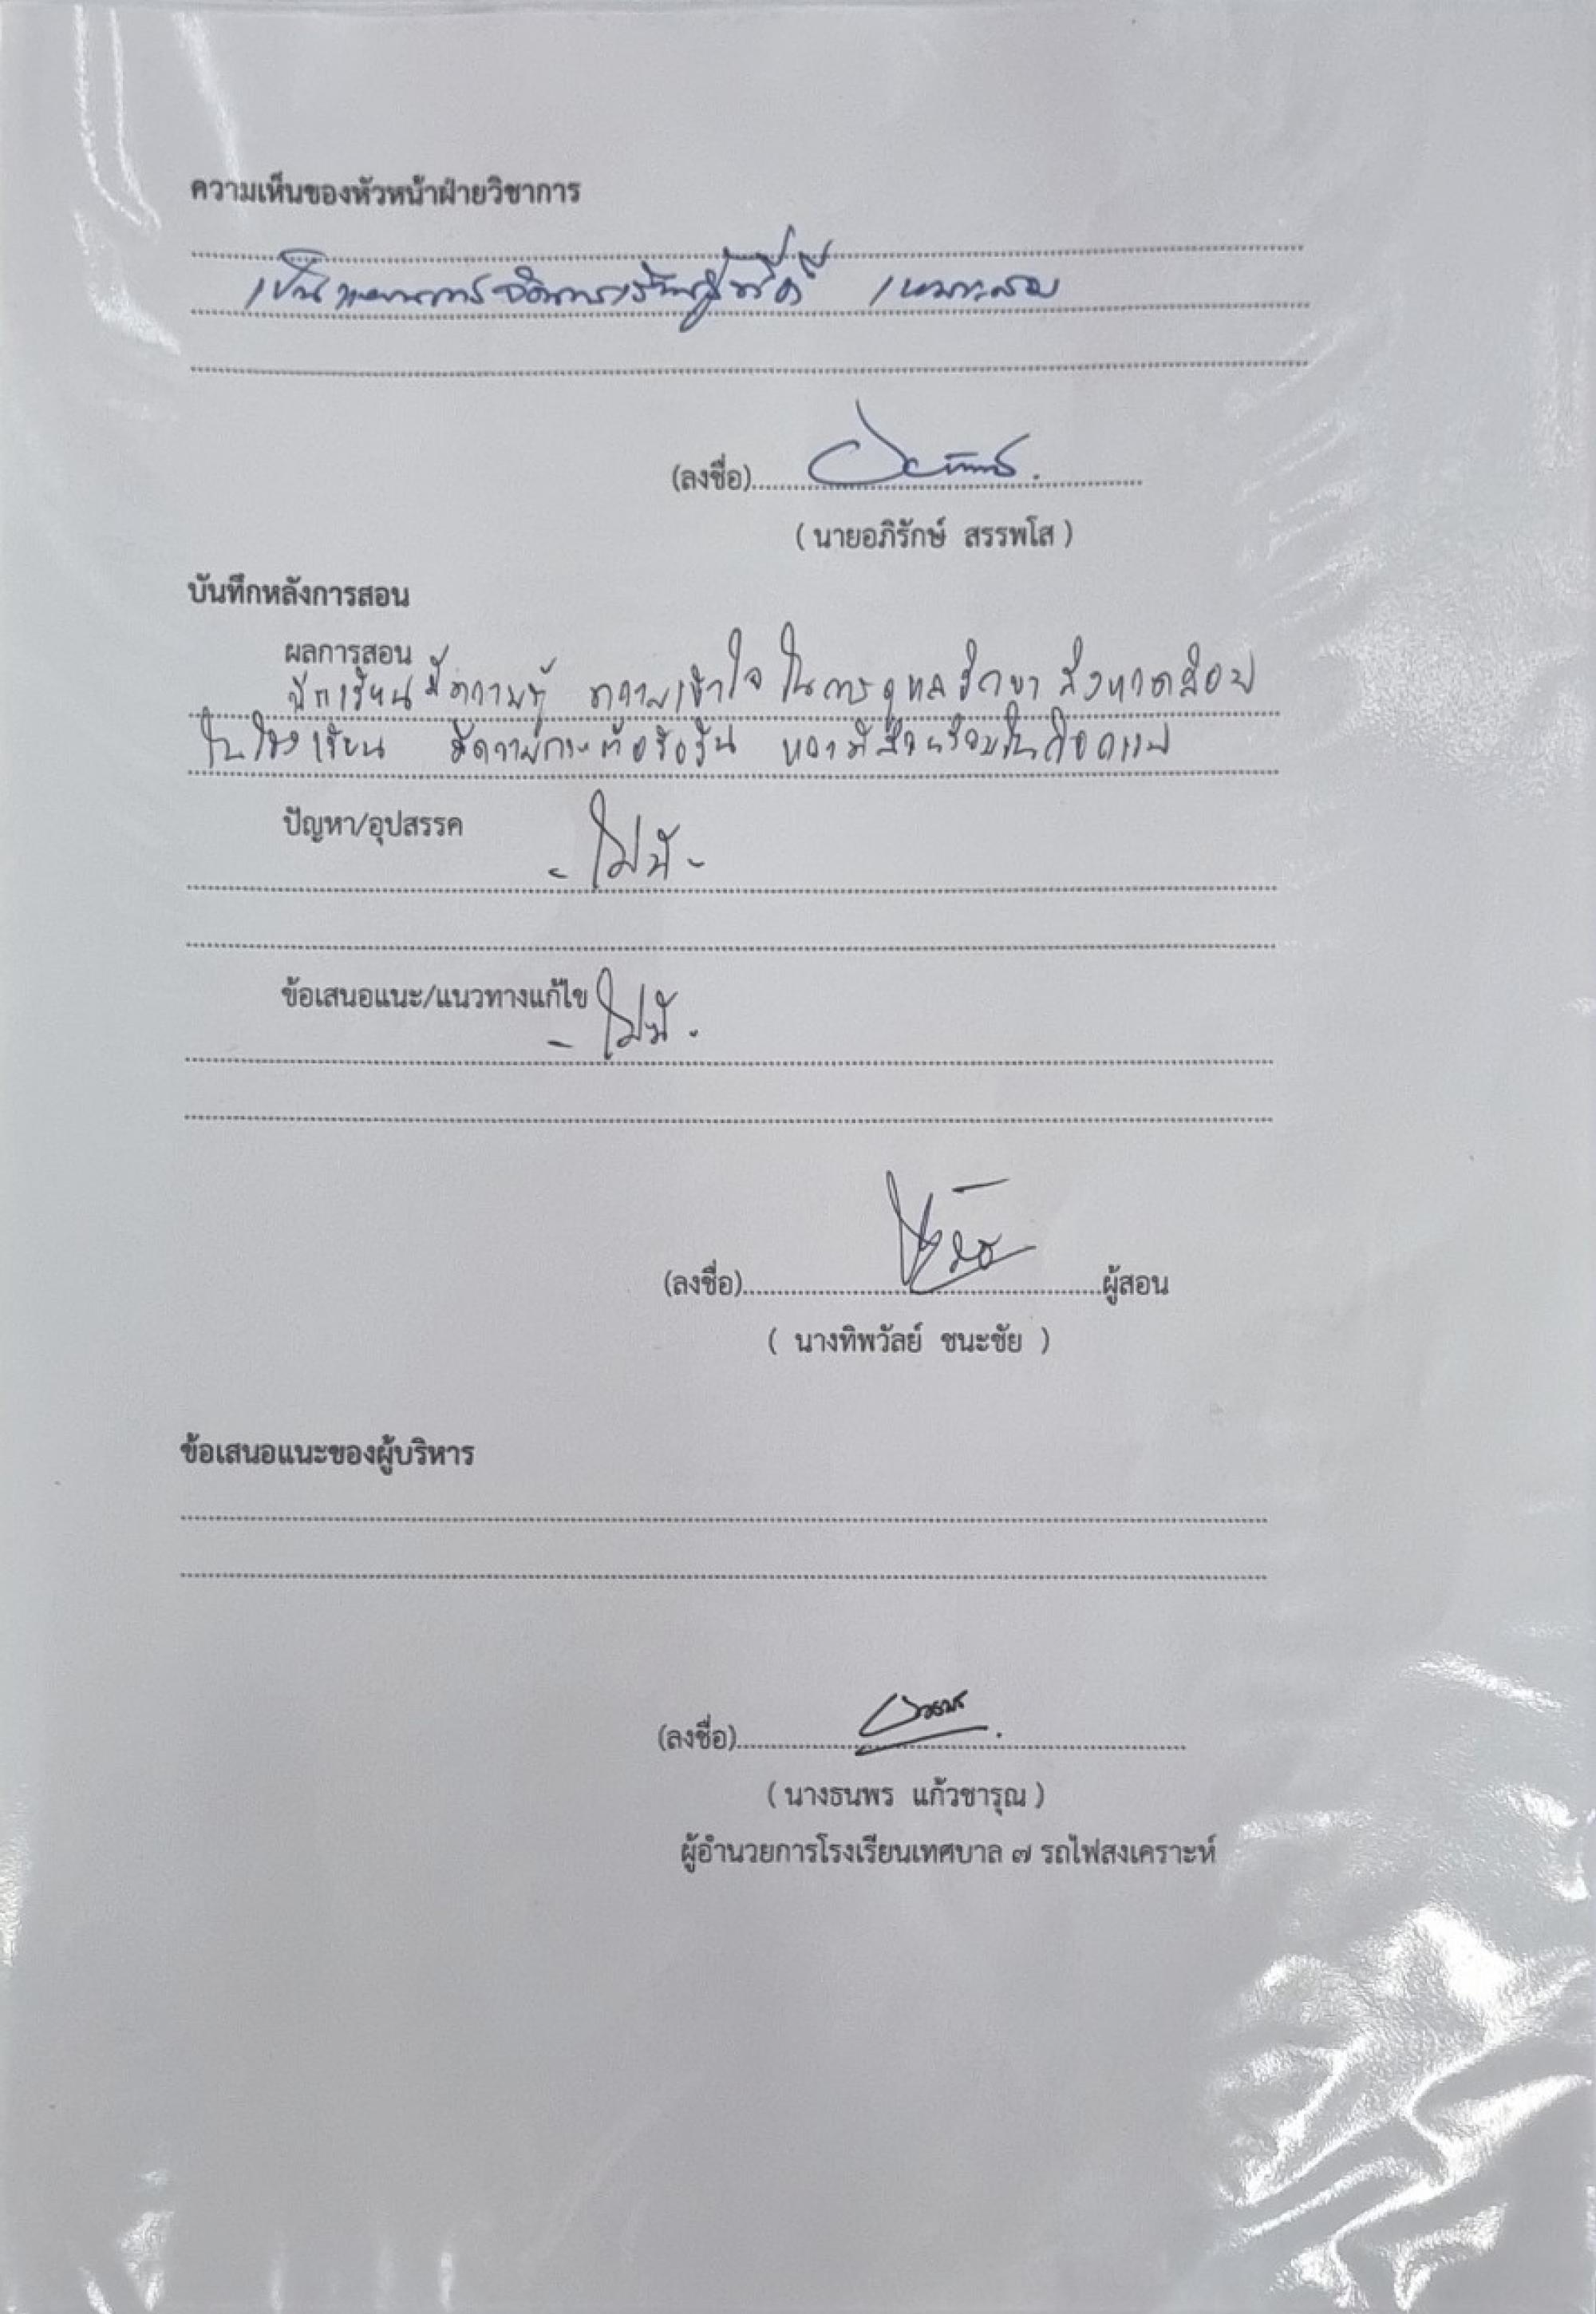 ความเห็นของหัวหน้าฝ่ายวิชาการ
เป็นแผนการจัดการเรียนรู้ที่ดี เหมาะสม
(ลงชื่อ)
( นายอภิรักษ์ สรรพโส )
บันทึกหลังการสอน
ผลการสอน
นักเรียนมีความรู้ ความเข้าใจ ในการดูแลรักษา สิ่งแวดล้อม
ในโรงเรียน มีความกระตือรือร้น และมีส่วนร่วมในกิจกรรม
ปัญหา/อุปสรรค
- ไม่มี -
ข้อเสนอแนะ/แนวทางแก้ไข
- ไม่มี -
(ลงชื่อ) ผู้สอน
( นางทิพวัลย์ ชนะชัย )
ข้อเสนอแนะของผู้บริหาร
(ลงชื่อ)
( นางธนพร แก้วชารุณ )
ผู้อำนวยการโรงเรียนเทศบาล ๗ รถไฟสงเคราะห์